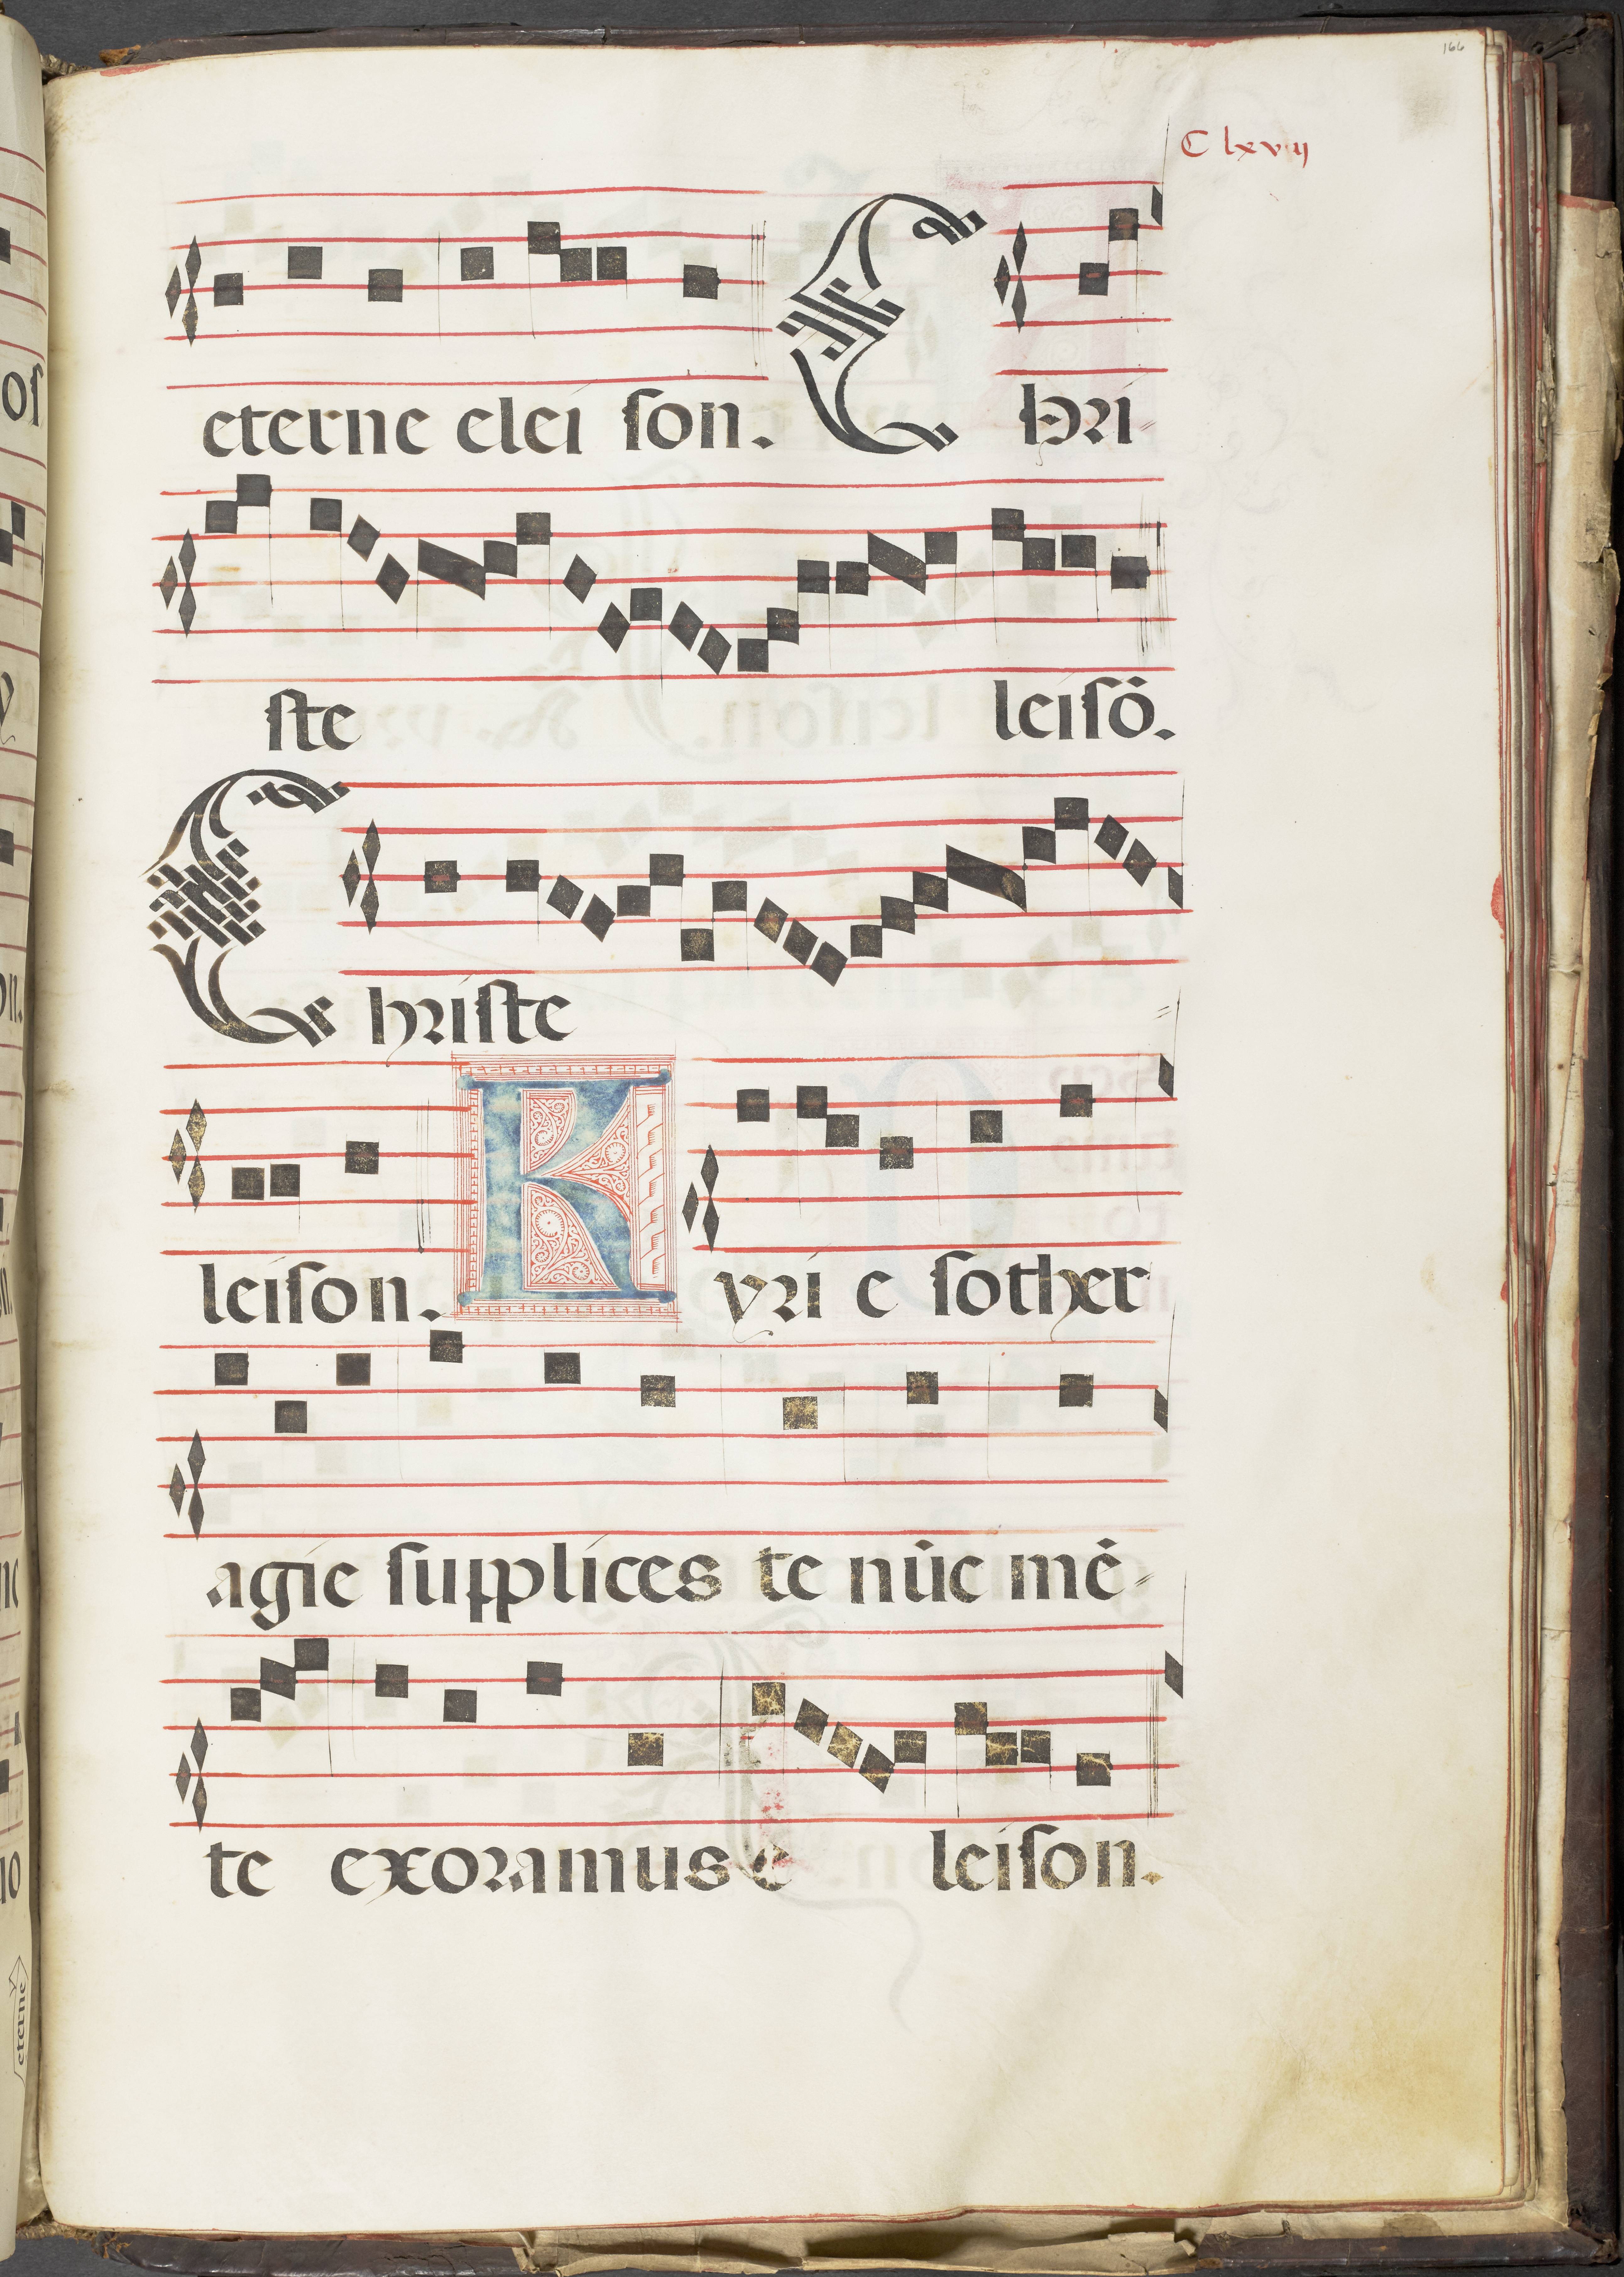 166
C lxvij
eterne elei son. C hri-
ste leisō.
C hriste
leison. K yri e sother
agie supplices te nūc mē-
te exoramus e leison.
eterne